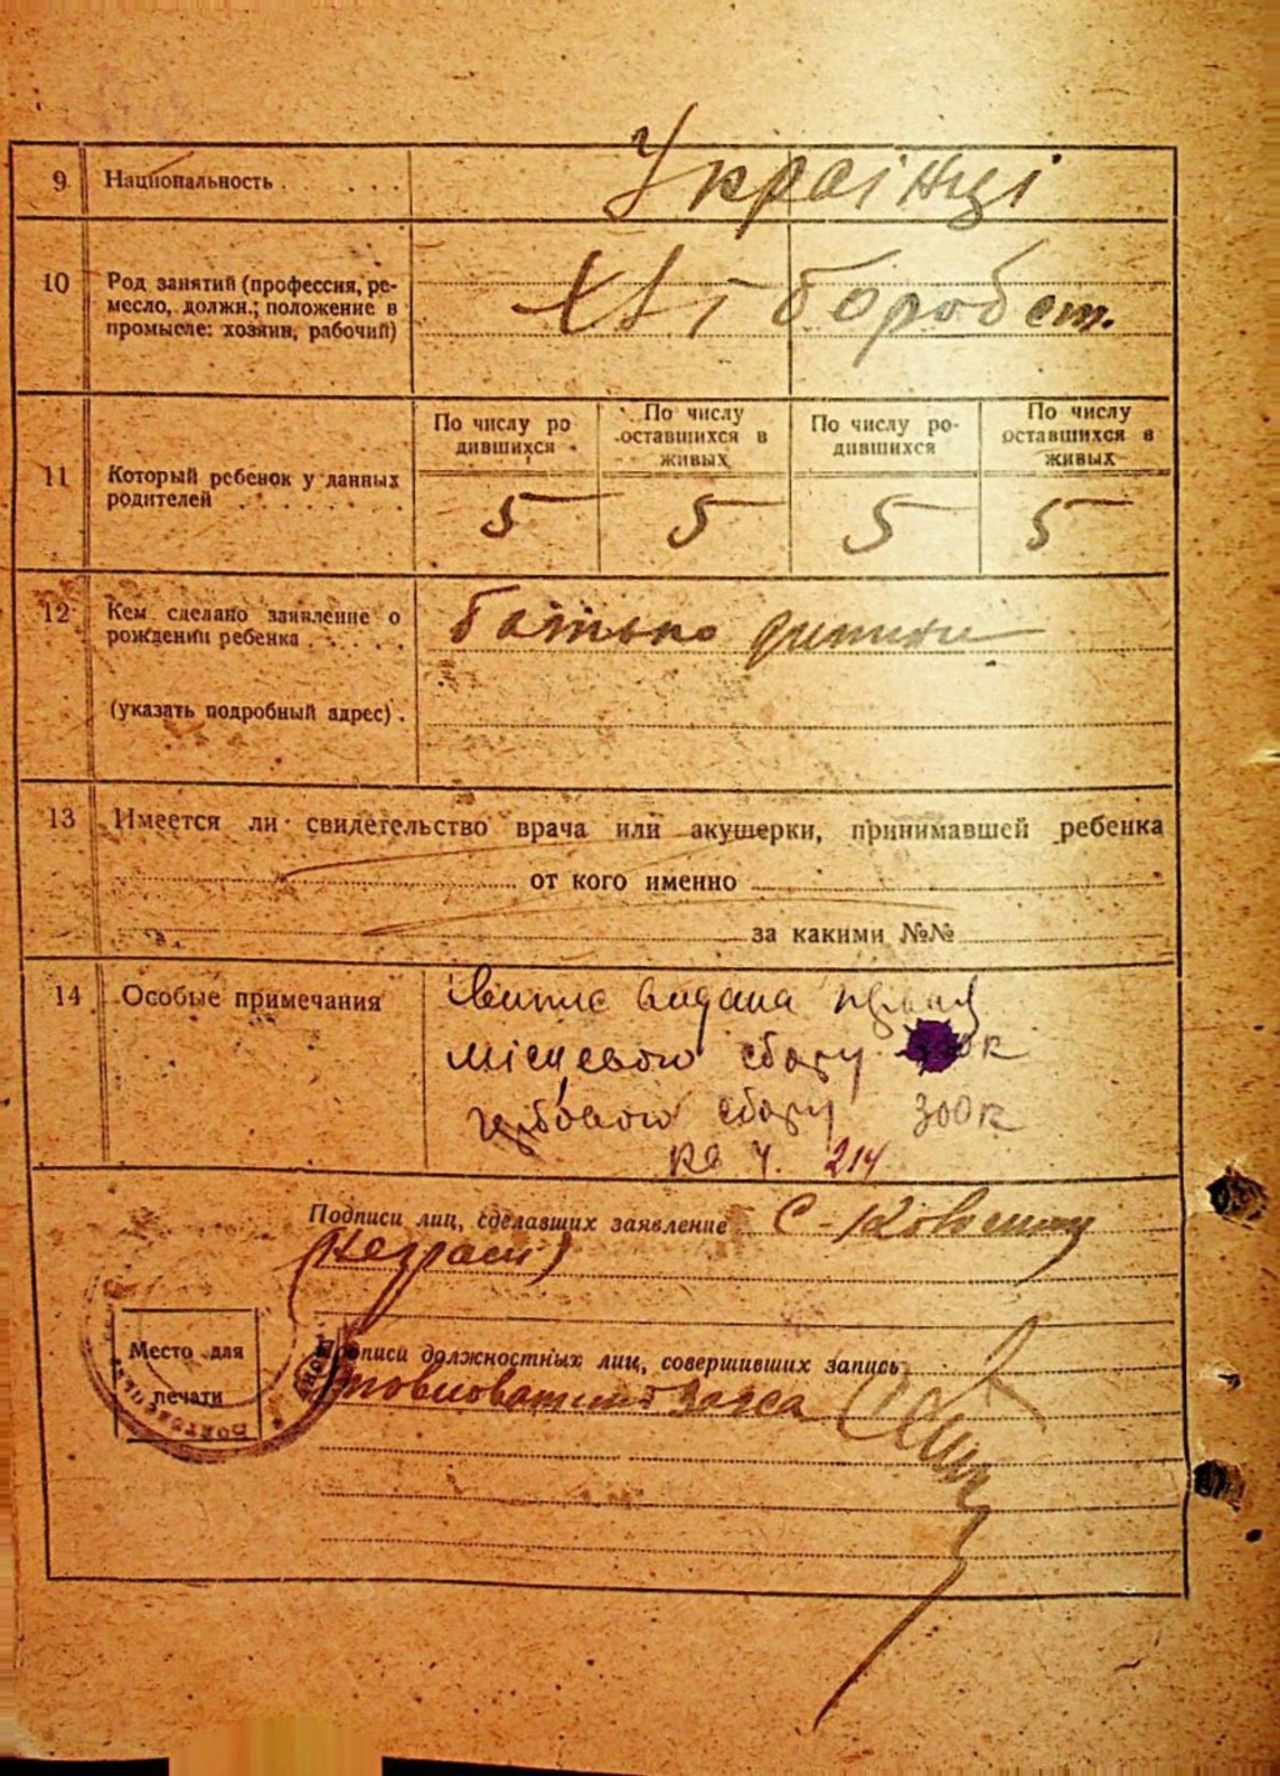 9 Национальность . . . . . Українці
10 Род занятий (профессия, ре-
месло, должн.; положение в
промысле: хозяин, рабочий)
хліборобст.
11 Который ребенок у данных
родителей . . . . . . .
По числу ро
дившихся
По числу
оставшихся в
живых
По числу ро-
дившихся
По числу
оставшихся в
живых
5 5 5 5
12 Кем сделано заявление о
рождении ребенка . . . . .
(указать подробный адрес) .
батько дитини
13 Имеется ли свидетельство врача или акушерки, принимавшей ребенка
от кого именно
за какими №№
14 Особые примечания
видана
місцевого сбору
гербового сбору 300к
кв ч. 214
Подписи лиц, сделавших заявление С-
Подписи должностных лиц, совершивших запись
Загса
Место для
печати